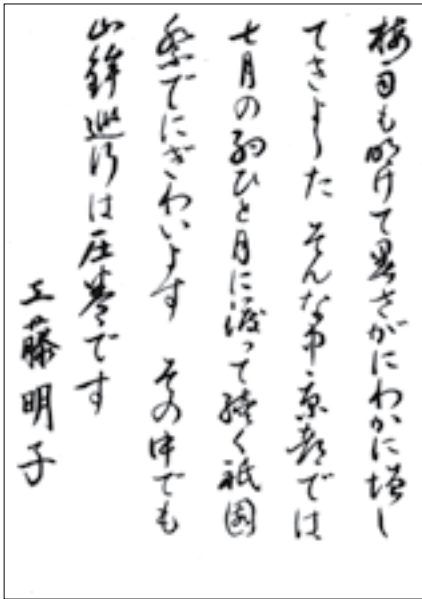 梅雨も明けて暑さがにわかに増し
てきました そんな中、京都では
七月の約ひと月に渡って続く祇園
祭でにぎわいます その中でも
山鉾巡行は圧巻です
工藤明子